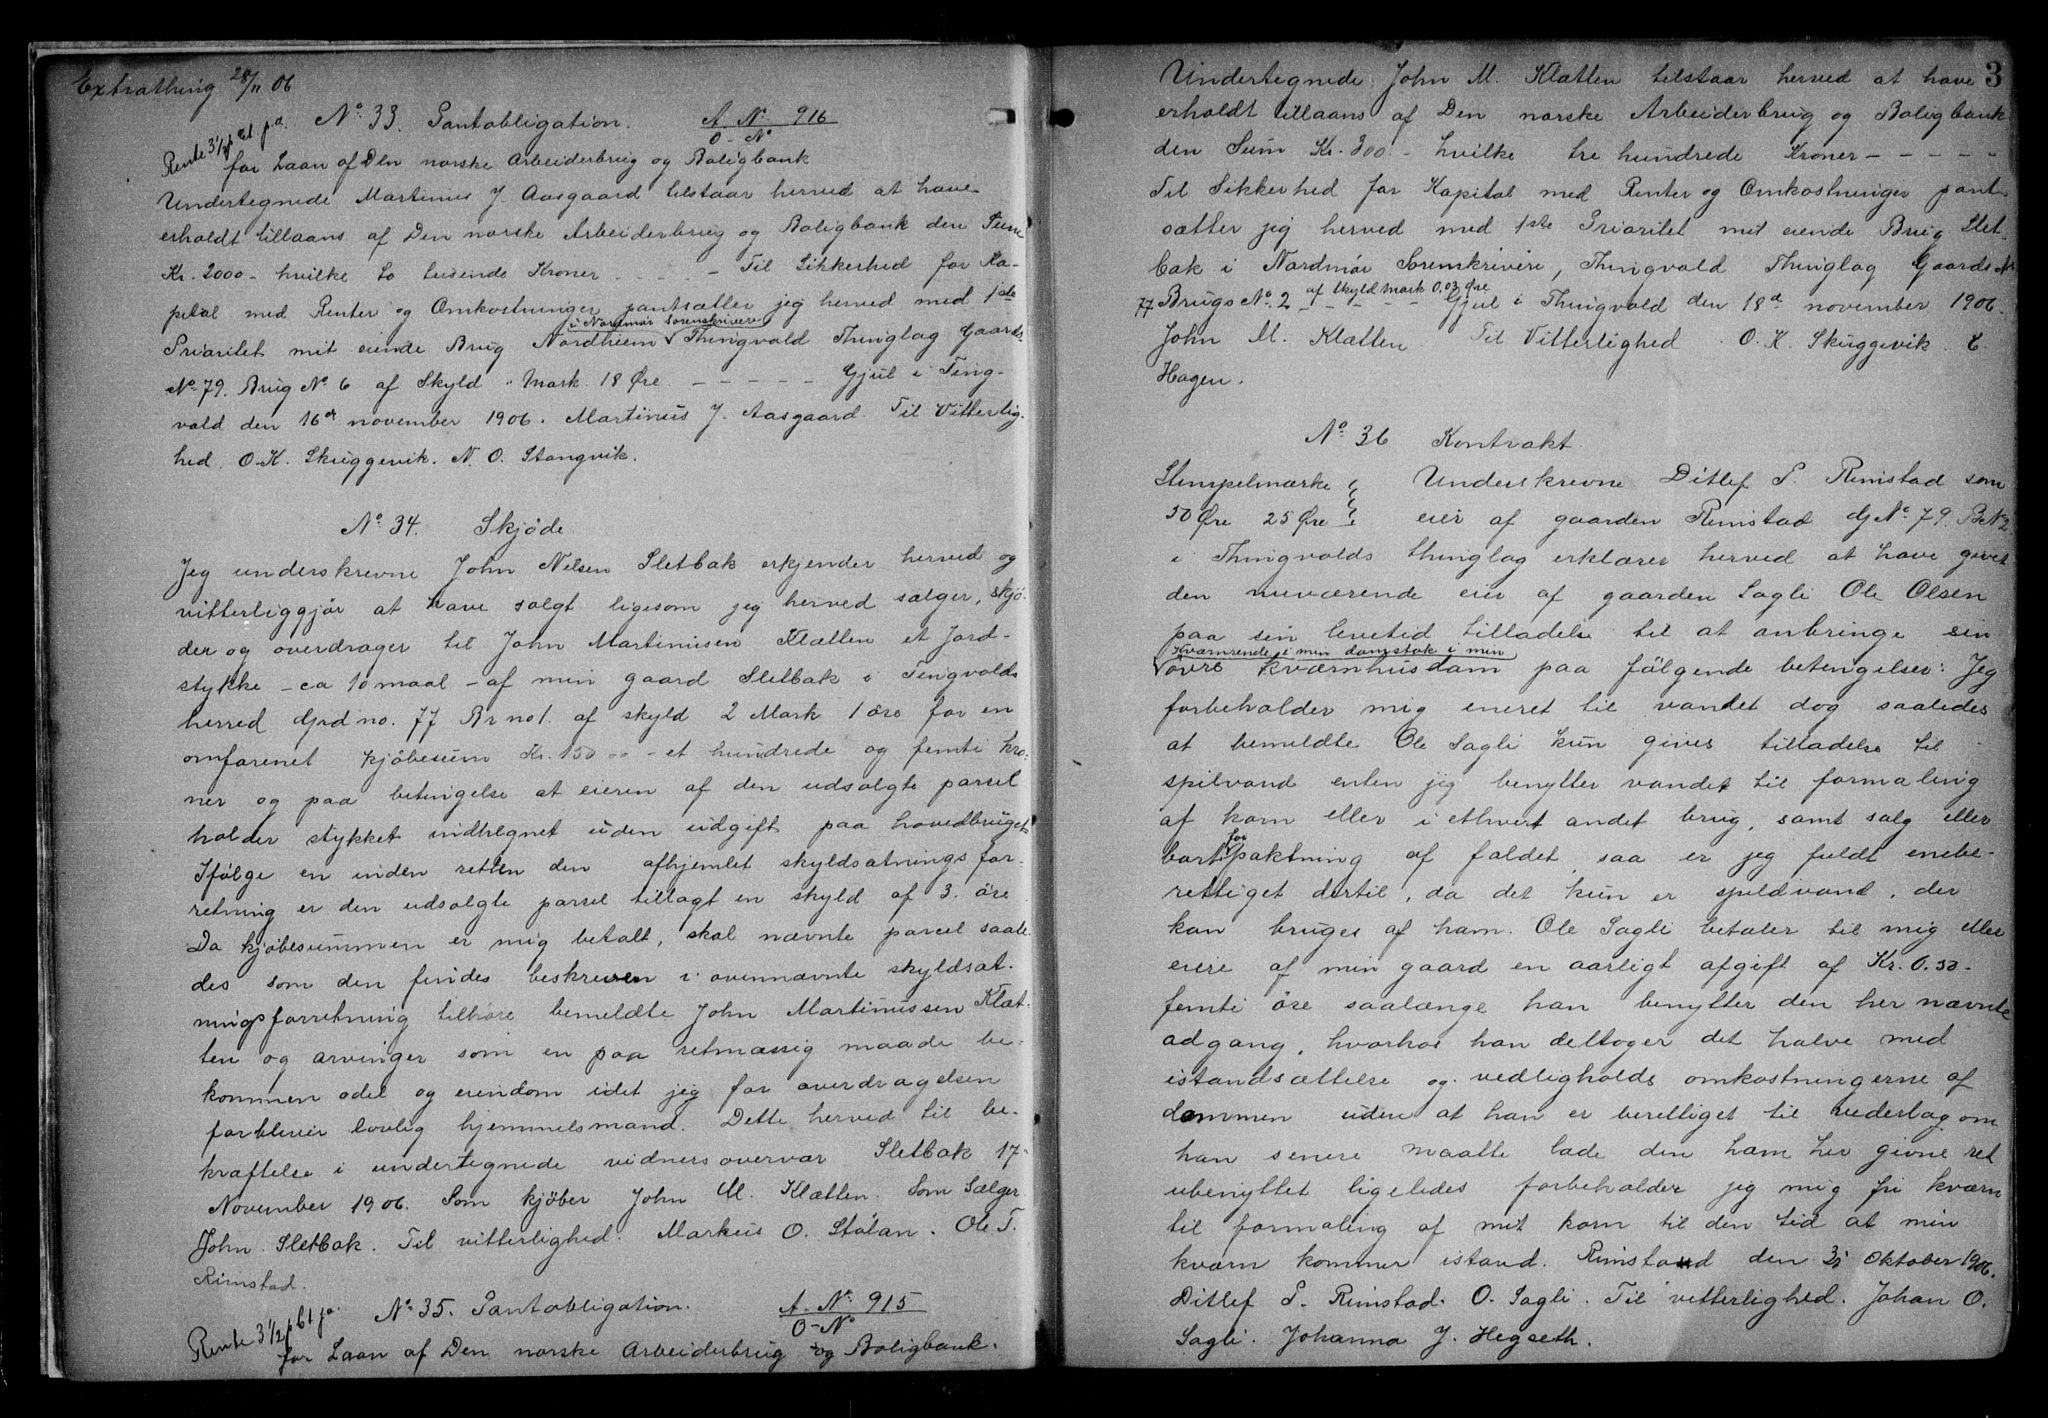 Extrathing 28/11 06
Nº 33. Pantobligation. A. Nº 916
O-Nº
Rente 3 1/2 pct pa.
for Laan af Den norske Arbeiderbrug og Boligbank
Undertegnede Martinus J. Aasgaard tilstaar herved at have
erholdt tillaans af Den norske Arbeiderbrug og Boligbank den Sum
Kr. 2000 - hvilke to tusende Kroner - - - - Til Sikkerhed for Ka-
pital med Renter og Omkostninger pantsætter jeg herved med 1ste
i Nordmør Sorenskriveri
Prioritet mit eiende Brug Nordheim Thingvold Thinglag Gaards
Nº 79. Brug Nº 6 af Skyld " Mark 18 Øre - - - - - Gjul i Ting-
vold den 16de november 1906. Martinus J. Aasgaard. Til Vitterlig-
hed. O. K. Skuggevik. N. O. Stangvik.
Nº 34. Skjøde
Jeg underskrevne John Nelsen Sletbak erkjender herved og
vitterliggjør at have solgt ligesom jeg herved sælger, skjø-
der og overdrager til John Martinusen Klætten et jord-
stykke - ca 10 maal - af min gaard Sletbak i Tingvolds
herred Grd no. 77 Br no 1. af skyld 2 Mark 1 øre for en
omforenet kjøbesum Kr. 150 00 - et hundrede og femti kro-
ner og paa betingelse at eieren af den udsolgte parsel
holder stykket indhegnet uden udgift paa hovedbruget
Ifølge en inden retten den afhjemlet skyldsætnings for-
retning er den udsolgte parsel tillagt en skyld af 3. øre
Da kjøbesummen er mig betalt, skal nævnte parcel saale-
des som den findes beskreven i ovennævnte skyldsæt-
ningsforretning tilhøre bemeldte John Martinussen Klæt-
ten og arvinger som en paa retmæssig maade be-
kommen odel og eiendom idet jeg for overdragelsen
forbliver lovlig hjemmelsmand. Dette herved til be-
kræftelse i undertegnede vidners overvær Sletbak 17-
November 1906. Som kjøber John M. Klætten. Som Sælger
John Sletbak. Til vitterlighed. Markus O. Stølan. Ole T.
Rimstad.
Nº 35. Pantobligation. A. Nº 915
O-Nº
Rente 3 1/2 pct pa.
for Laan af Den norske Arbeiderbrug og Boligbank.
3
Undertegnede John M. Klætten tilstaar herved at have
erholdt tillaans af Den norske Arbeiderbrug og Boligbank
den Sum Kr. 300 - hvilke tre hundrede Kroner - - - - -
Til Sikkerhed for Kapital med Renter og Omkostninger pant-
sætter jeg herved med 1ste Prioritet mit eiende Brug Slet-
bak i Nordmør Sorenskriveri, Thingvold Thinglag Gaards Nº
af Skyld Mark 0.03 Øre
77 Brugs Nº 2 - - - - Gjul i Thingvold den 18d november 1906.
John M. Klætten. Til Vitterlighed O. K. Skuggevik. E.
Hagen.
Nº 36 Kontrakt
Stempelmærke Underskrevne Ditlef P. Rimstad som
50 Øre 25 Øre eier af gaarden Rimstad G Nº 79. B Nº 2
i Thingvolds thinglag erklærer herved at have givet
den nuværende eier af gaarden Sagli Ole Olsen
paa sin levetid tilladelse til at anbringe sin
Kværnrende i min damstok i min
øvre kværnhusdam paa følgende betingelser: Jeg
forbeholder mig eneret til vandet dog saaledes
at bemeldte Ole Sagli kun gives tilladelse til
spilvand enten jeg benytter vandet til formaling
af korn eller i ethvert andet brug, samt salg eller
for
bortpaktning af faldet, saa er jeg fuldt enebe-
rettiget dertil, da det kun er spildvand, der
kan bruges af ham. Ole Sagli betaler til mig eller
eiere af min gaard en aarligt afgift af Kr. 0.50-
femti øre saalænge han benytter den her nævnte
adgang, hvorhos han deltager det halve med
istandsættelse og vedligholds omkostningerne af
dammen uden at han er berettiget til vederlag om
han senere maatte lade den ham her givne ret
ubenyttet ligeledes forbeholder jeg mig fri kværn
til formaling af mit korn til den tid at min
kværn kommer istand. Rimstad den 31 Oktober 1906.
Ditlef P. Rimstad. O. Sagli. Til vitterlighed. Johan O.
Sagli. Johanna J. Hegseth.